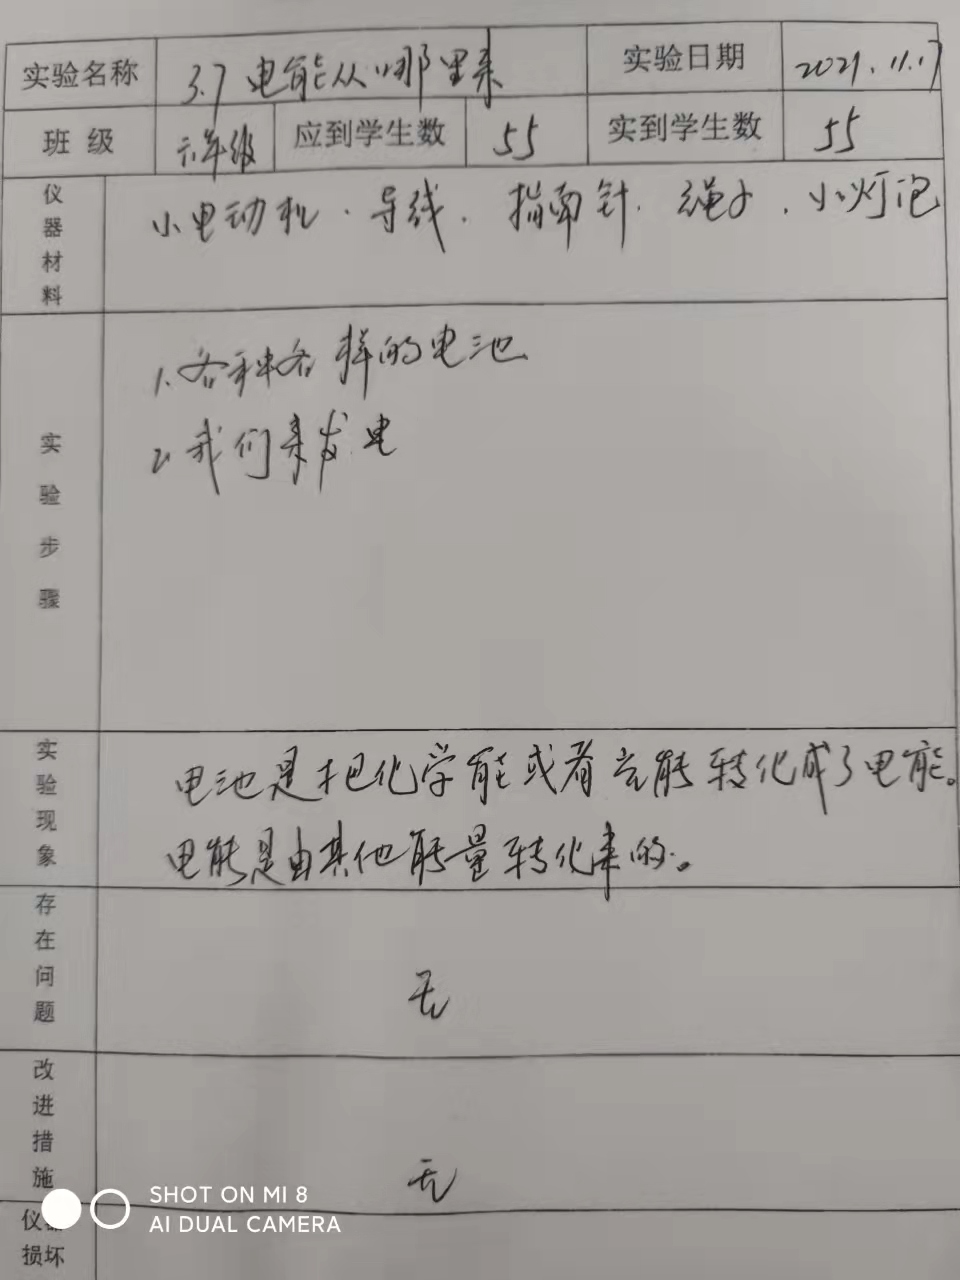 实验名称 3.7 电能从哪里来 实验日期 2021.11.17
班级 六年级 应到学生数 55 实到学生数 55
仪器材料 小电动机、导线、指南针、绳子、小灯泡
实验步骤
1.各种各样的电池
2.我们来发电
实验现象
电池是把化学能或者光能转化成了电能。
电能是由其他能量转化来的。
存在问题 无
改进措施 无
仪器损坏
SHOT ON MI 8
AI DUAL CAMERA